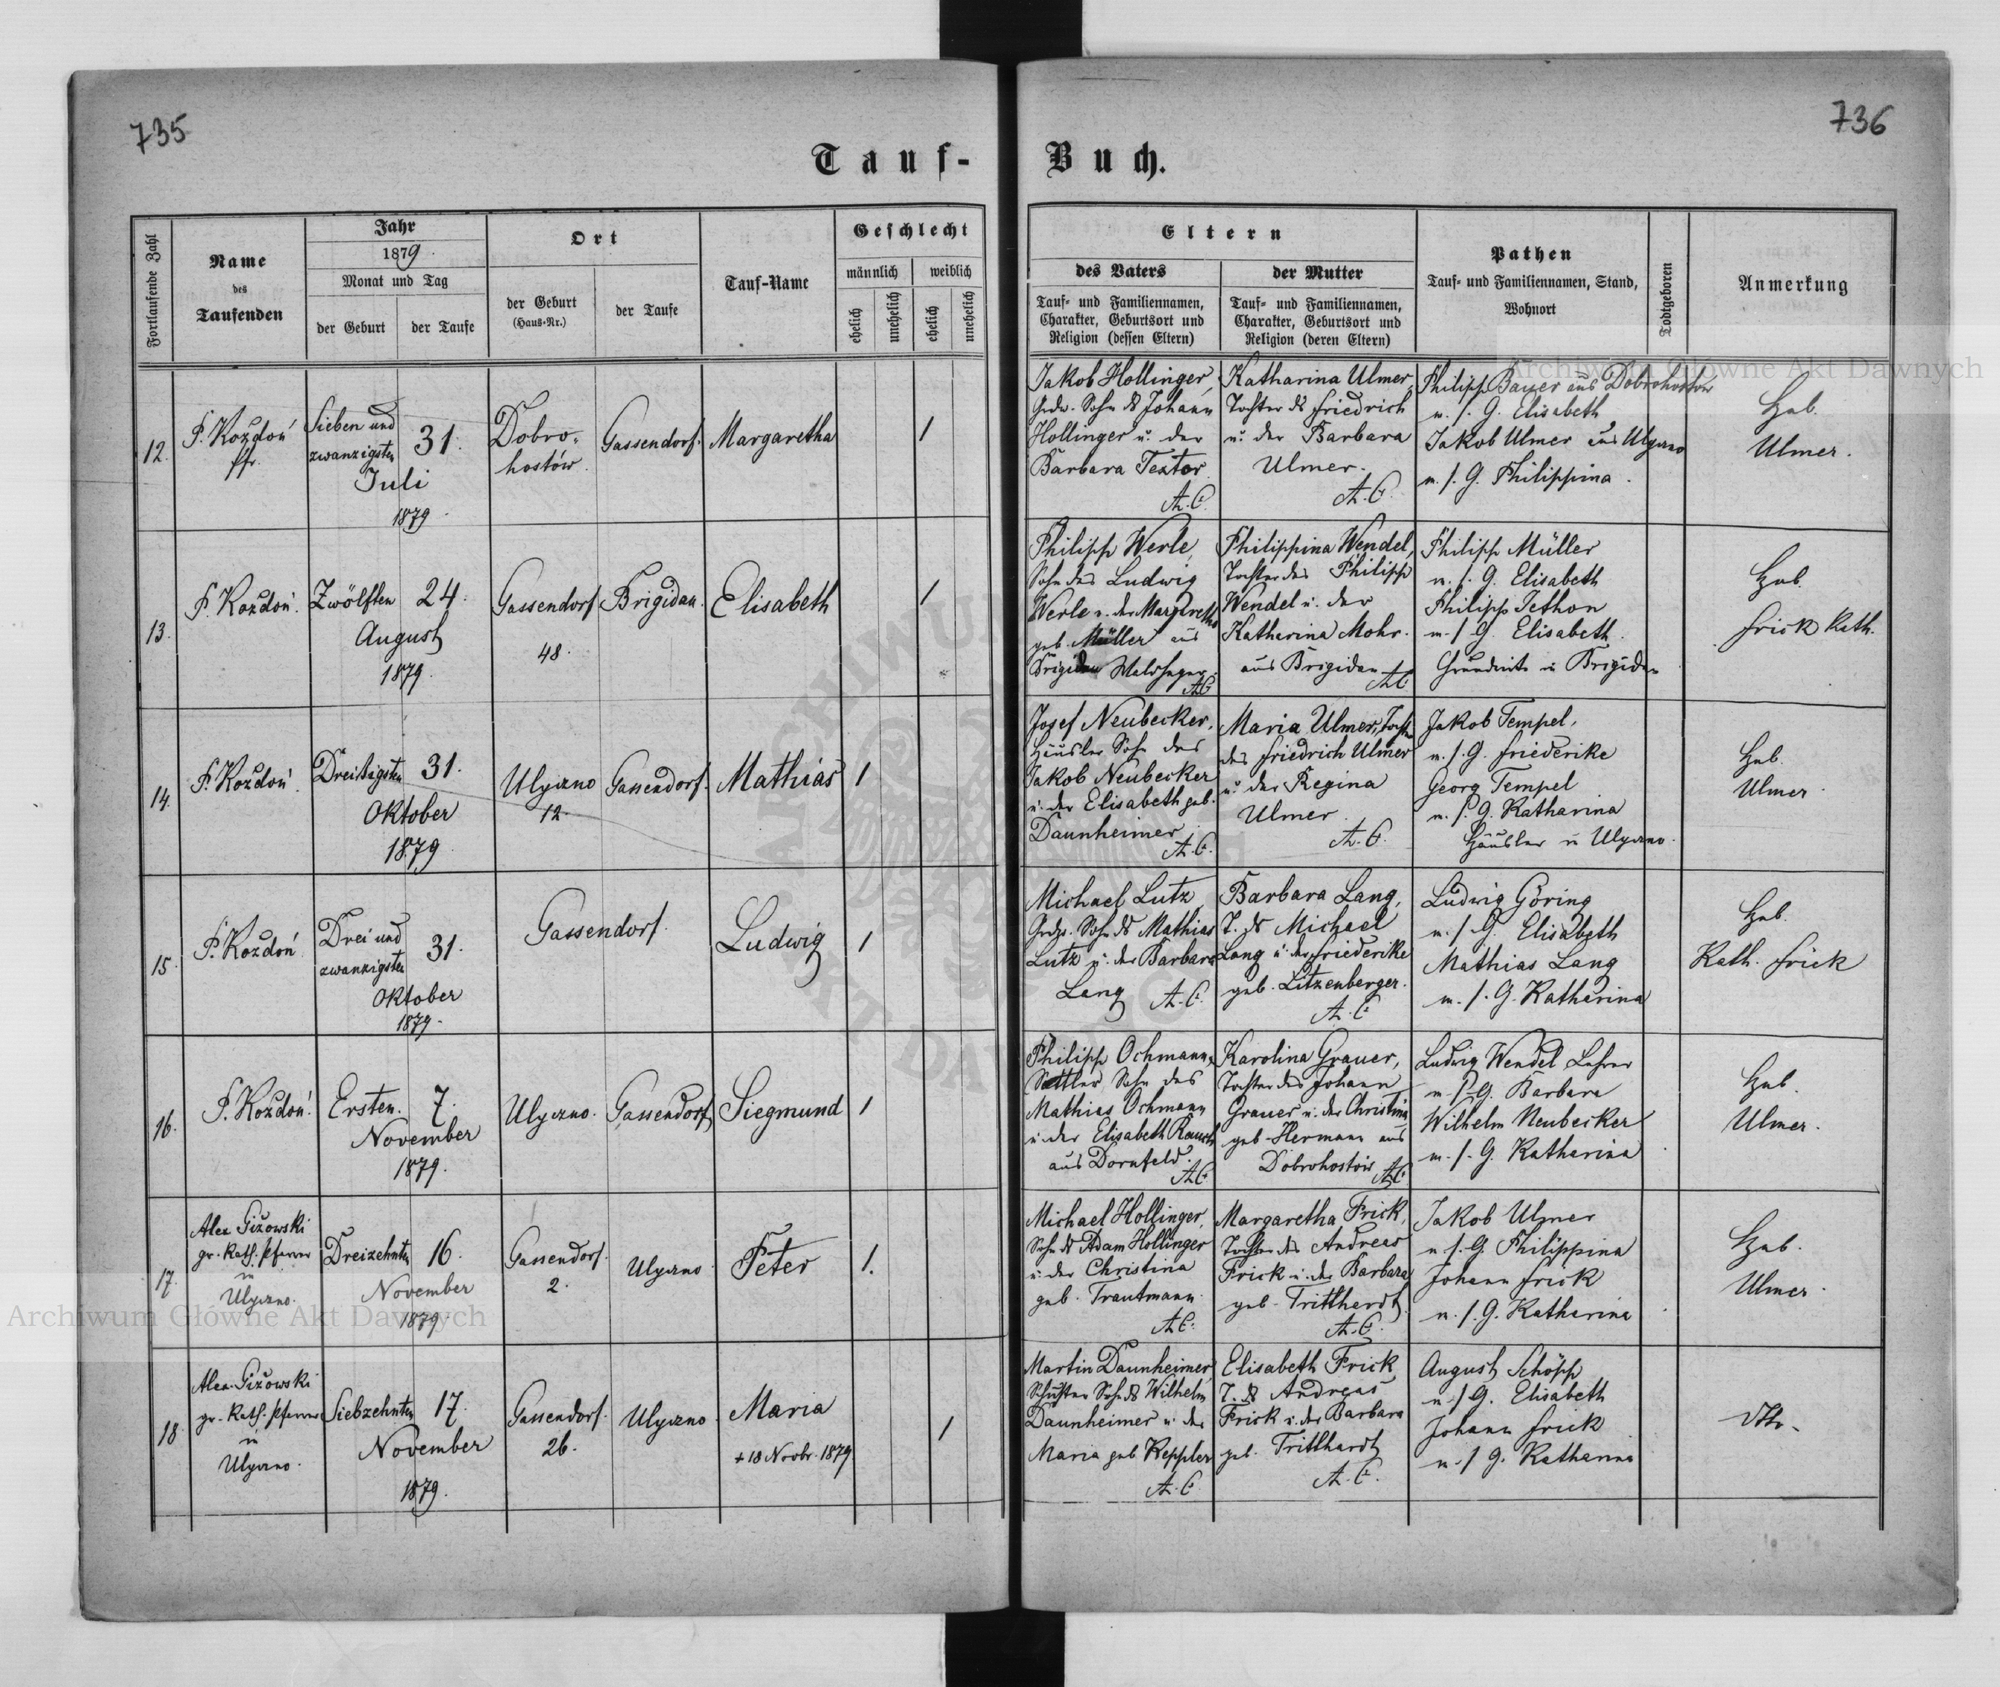 735
736
Tauf-
Buch.
Fortlaufende Zahl
Name
des
Taufenden
Jahr
1879.
Monat und Tag
der Geburt
der Taufe
Ort
der Geburt
(Haus-Nr.)
der Taufe
Tauf-Name
Geschlecht
männlich
weiblich
ehelich
unehelich
ehelich
unehelich
Eltern
des Vaters
Tauf- und Familiennamen,
Charakter, Geburtsort und
Religion (dessen Eltern)
der Mutter
Tauf- und Familiennamen,
Charakter, Geburtsort und
Religion (deren Eltern)
Pathen
Tauf- und Familiennamen, Stand,
Wohnort
Todtgeboren
Anmerkung
12.
P. Kozdoń
Pfr.
Sieben und
zwanzigsten
Juli
1879.
31.
Dobro-
hostów.
Gassendorf.
Margaretha
1
Jakob Hollinger,
Grdw. Sohn ds Johann
Hollinger u. der
Barbara Textor
A. C.
Katharina Ulmer,
Tochter ds Friedrich
u. der Barbara
Ulmer.
A. C.
Philipp Bauer aus Dobrohostów
m. s. G. Elisabeth
Jakob Ulmer aus Ulyczno
m. s. G. Philippina.
Heb.
Ulmer.
13.
P. Kozdoń.
Zwölften
August
1879.
24.
Gassendorf
48.
Brigidau.
Elisabeth
1
Philipp Werle,
Sohn des Ludwig
Werle u. der Margaretha
geb. Müller aus
Brigidau
A.C
Philippina Wendel,
Tochter des Philipp
Wendel u. der
Katharina Mohr.
aus Brigidau
A.C
Philipp Müller
m. s. G. Elisabeth
Philipp Tethon
m. s. G. Elisabeth.
Grundwirte in Brigidau
Heb.
Frick Kath.
14.
P. Kozdoń.
Dreißigsten
Oktober
1879.
31.
Ulyczno
12.
Gassendorf.
Mathias
1
Josef Neubecker,
Häusler Sohn des
Jakob Neubecker
u. der Elisabeth geb.
Daunheimer.
A. C.
Maria Ulmer, Tocht.
des Friedrich Ulmer
u. der Regina
Ulmer.
A. C.
Jakob Tempel,
m. s. G. Friederike
Georg Tempel
m. s. G. Katharina
Häusler in Ulyczno.
Heb.
Ulmer.
15.
P. Kozdoń
Drei und
zwanzigsten
Oktober
1879.
31.
Gassendorf.
Ludwig
1
Michael Lutz,
Sohn ds Mathias
Lutz u. der Barbara
Lang A. C.
Barbara Lang,
T. ds Michael
Lang u. der Friederike
geb. Litzenberger.
A. C
Ludwig Göring
m. s. G. Elisabeth
Mathias Lang
m. s. G. Katharina
Heb.
Kath. Frick
16.
P. Kozdoń.
Ersten.
November
1879.
7.
Ulyczno.
Gassendorf
Siegmund
1
Philipp Ochmann,
Sattler Sohn des
Mathias Ochmann
u. der Elisabeth Rausch
aus Dornfeld.
A.C
Karolina Grauer,
Tochter des Johann
Grauer u. der Christina
geb. Hermann aus
Dobrohostów A.C.
Ludwig Wendel Lehrer
m. s. G. Barbara
Wilhelm Neubecker
m. s. G. Katharina
Heb.
Ulmer.
17.
Alex Giżowski
gr.-kath. Pfarrer
in
Ulyczno.
Dreizehnten
November
1879.
16.
Gassendorf.
2.
Ulyczno
Peter
1.
Michael Hollinger,
Sohn ds Adam Hollinger
u. der Christina
geb. Trautmann.
A.C.
Margaretha Frick,
Tochter des Andreas
Frick u. der Barbara
geb. Tritthardt.
A. C.
Jakob Ulmer
m. s. G. Philippina
Johann Frick
m. s. G. Katharina
Heb.
Ulmer.
18.
Alex. Giżowski
gr.-kath. Pfarrer
in
Ulyczno.
Siebzehnten
November
1879.
17.
Gassendorf.
26.
Ulyczno.
Maria
+ 18 Novbr. 1879
1
Martin Daunheimer,
Schuster Sohn ds Wilhelm
Daunheimer u. der
Maria geb Keppler
A. C
Elisabeth Frick,
T. ds Andreas
Frick u. der Barbara
geb. Tritthardt
A. C.
August Schöpp
m. s. G. Elisabeth
Johann Frick
m. s. G. Katharina
dtto.
Archiwum Główne Akt Dawnych
Archiwum Główne Akt Dawnych